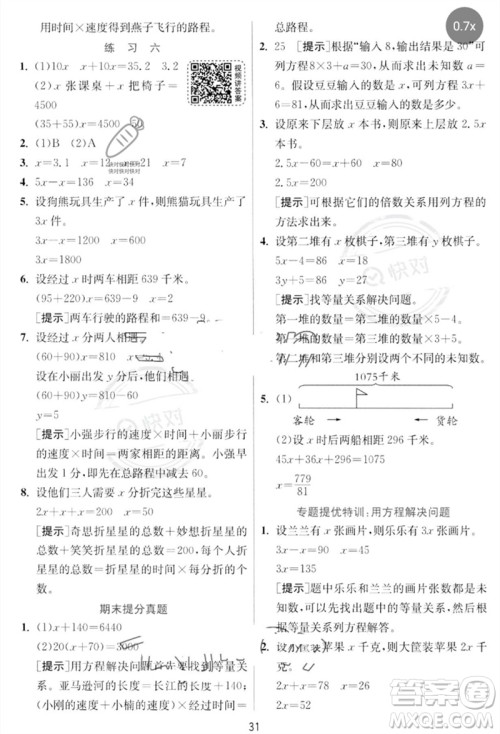 用时间×速度得到燕子飞行的路程。
练习六
1. (1)10x x+10x=35.2 3.2
(2)x张课桌+x把椅子=
4500
(35+55)x=4500
2. (1)B (2)A
3. x=3.1 x=12 x=21 x=7
4. 5x-x=136 x=34
5. 设狗熊玩具生产了x件,熊猫玩具生产了
3x件。
3x-x=1800 x=900
3x-x=1200 x=600
6. 设经过x时两车相距639千米。
(95+220)x=639-9 x=2
[提示]两车行驶的路程和=639-9。
7. 设经过x分两人相遇。
(60+90)x=810
设在小丽出发y分后两人相遇。
(60+90)y=810-60 y=5
[提示]小强步行的速度×时间+小丽步
行的速度×时间=两家相距的距离。小强早
出发1分,即总路程少了60米。
8. 设他们三人需要x分折完这些星星。
2x+x+x=20 x=5
[提示]奇思折星星的总数+妙想折星星
的总数+笑笑折星星的总数=20,折星星的
总数=折星星的速度×时间。
期末提分真题
1. (1)x+140=6440
(2)20(x+70)=3000
[提示]用方程解决问题关键是找等量关
系。亚马逊河的长度=长江的长度+140。
(小刚的速度+小王的速度)×相遇时间=
总路程。
2. 25 [提示]根据“输入8,输出是30”可
列方程8×2+2x=30,从而求出未知数x。
假设豆豆输入的数是a,可列方程2a+2x=
64,求出豆豆输入的数。
3. 设原来下层放了x本书,则上层放了
2.5x本书。
2.5x-60=x+30 x=60
2.5x=200
[提示]可根据它们的倍数关系用列方程的
方法求出来。
4. 设第二堆有x枚棋子,第三堆有y枚棋子。
5x-4=86 x=18
3y+5=86 y=27
[提示]找等量关系解决问题。
第一堆的数量=第二堆的数量×5-4。
第一堆的数量=第三堆的数量×3+5。
第二堆和第三堆分别设两个不同的未知数。
1075千米
5. (1)
客轮 货轮
(2)设x时后两船相距296千米。
45x+36x+296=1075
x=779/81
专题提优特训:用方程解决问题
1. 设兰兰有x张画片,则乐乐有3x张画片。
3x-x=90 x=45
3x=135
[提示]题中乐乐和兰兰的画片张数都是未
知的,但存在数量上的等量关系,所以可以
根据等量关系列方程解答。
2. 设小筐装苹果x千克,大筐装苹果2x千克。
2x-x=52 x=52
31
0.7x
视频讲解答案
快对
作业答案